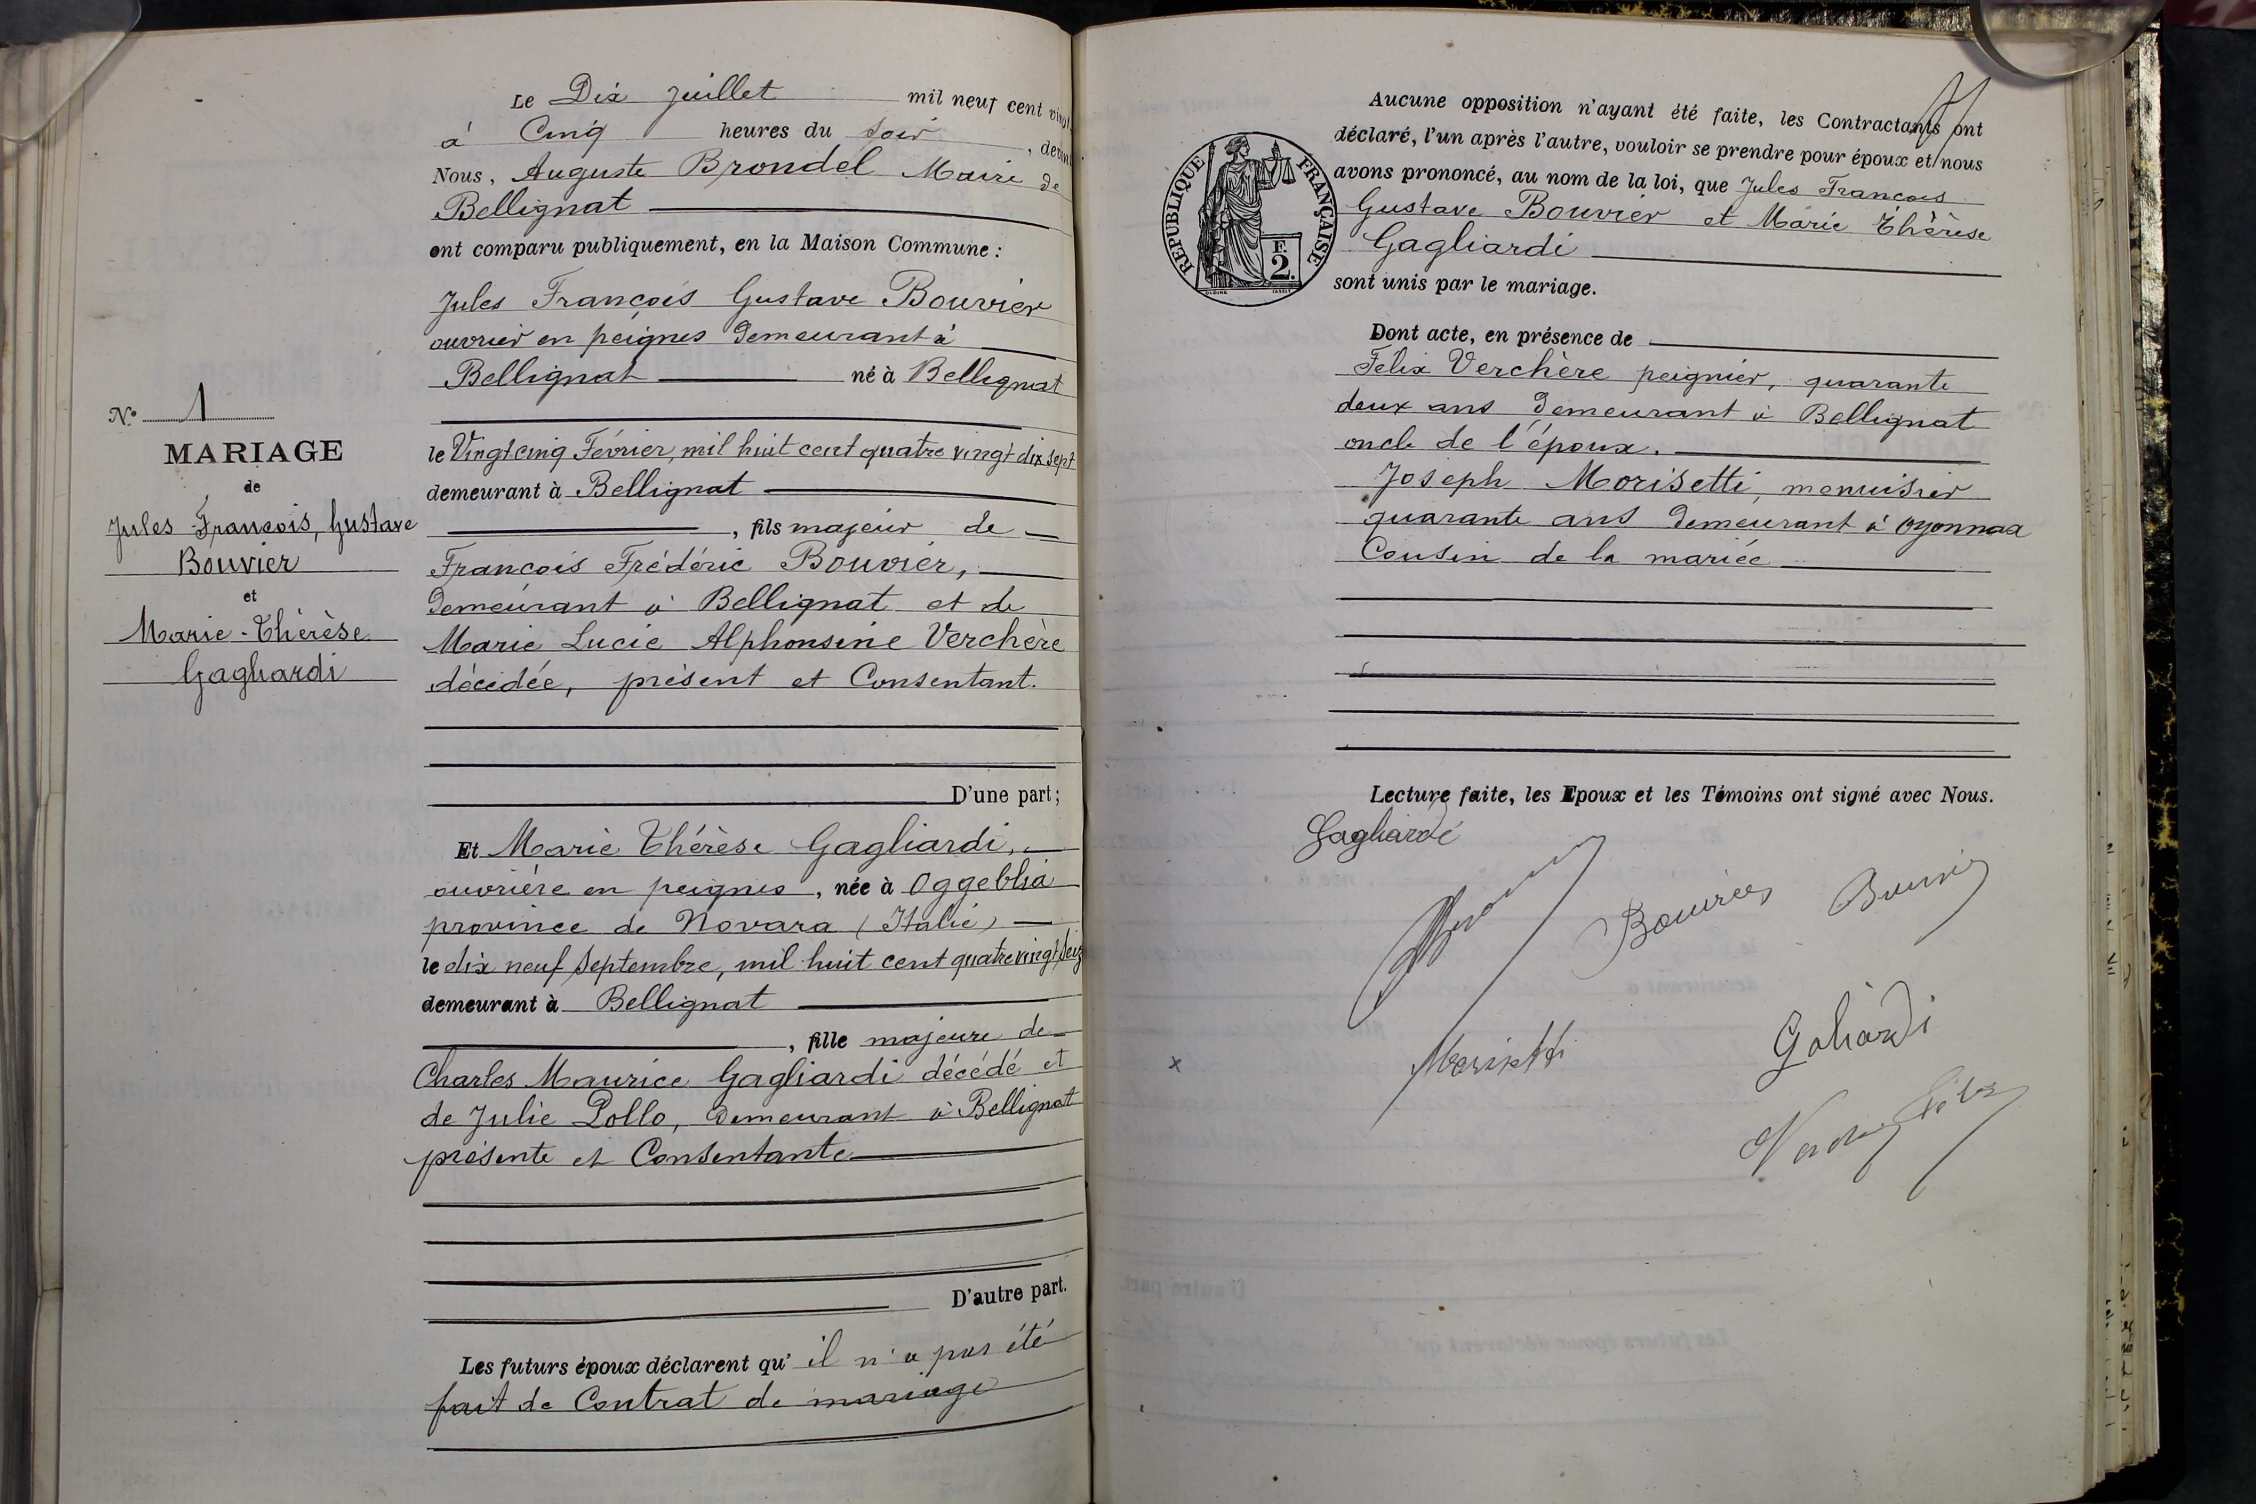 Le Dix Juillet mil neuf cent vingt
à Cinq heures du soir, devant
Nous, Auguste Brondel Maire de
Bellignat
ont comparu publiquement, en la Maison Commune :
Jules François Gustave Bouvier
ouvrier en peignes demeurant à
Bellignat né à Bellignat
le Vingt cinq Février, mil huit cent quatre vingt dix sept
demeurant à Bellignat
, fils majeur de
François Frédéric Bouvier,
demeurant à Bellignat et de
Marie Lucie Alphonsine Verchère
décédée, présent et Consentant.
D'une part ;
N° 1
MARIAGE
de
Jules François, Gustave
Bouvier
et
Marie-Thérèse
Gagliardi
Et Marie Thérèse Gagliardi,
ouvrière en peignes, née à Oggeblia
province de Novara (Italie)
le dix neuf Septembre, mil huit cent quatre vingt Seiz
demeurant à Bellignat
, fille majeure de
Charles Maurice Gagliardi décédé et
de Julie Pollo, demeurant à Bellignat
présente et Consentante
D'autre part.
Les futurs époux déclarent qu'il n'a pas été
fait de Contrat de mariage
Aucune opposition n'ayant été faite, les Contractants ont
déclaré, l'un après l'autre, vouloir se prendre pour époux et nous
avons prononcé, au nom de la loi, que Jules François
Gustave Bouvier et Marie Thérèse
Gagliardi
sont unis par le mariage.
RÉPUBLIQUE FRANÇAISE
F.
2.
Dont acte, en présence de
Félix Verchère peignier, quarante
deux ans demeurant à Bellignat
oncle de l'époux.
Joseph Morisetti, menuisier
quarante ans demeurant à Oyonnax
Cousin de la mariée
Lecture faite, les Epoux et les Témoins ont signé avec Nous.
Gagliardi
Bouvier
Bouvier
Morisetti
Galiardi
x